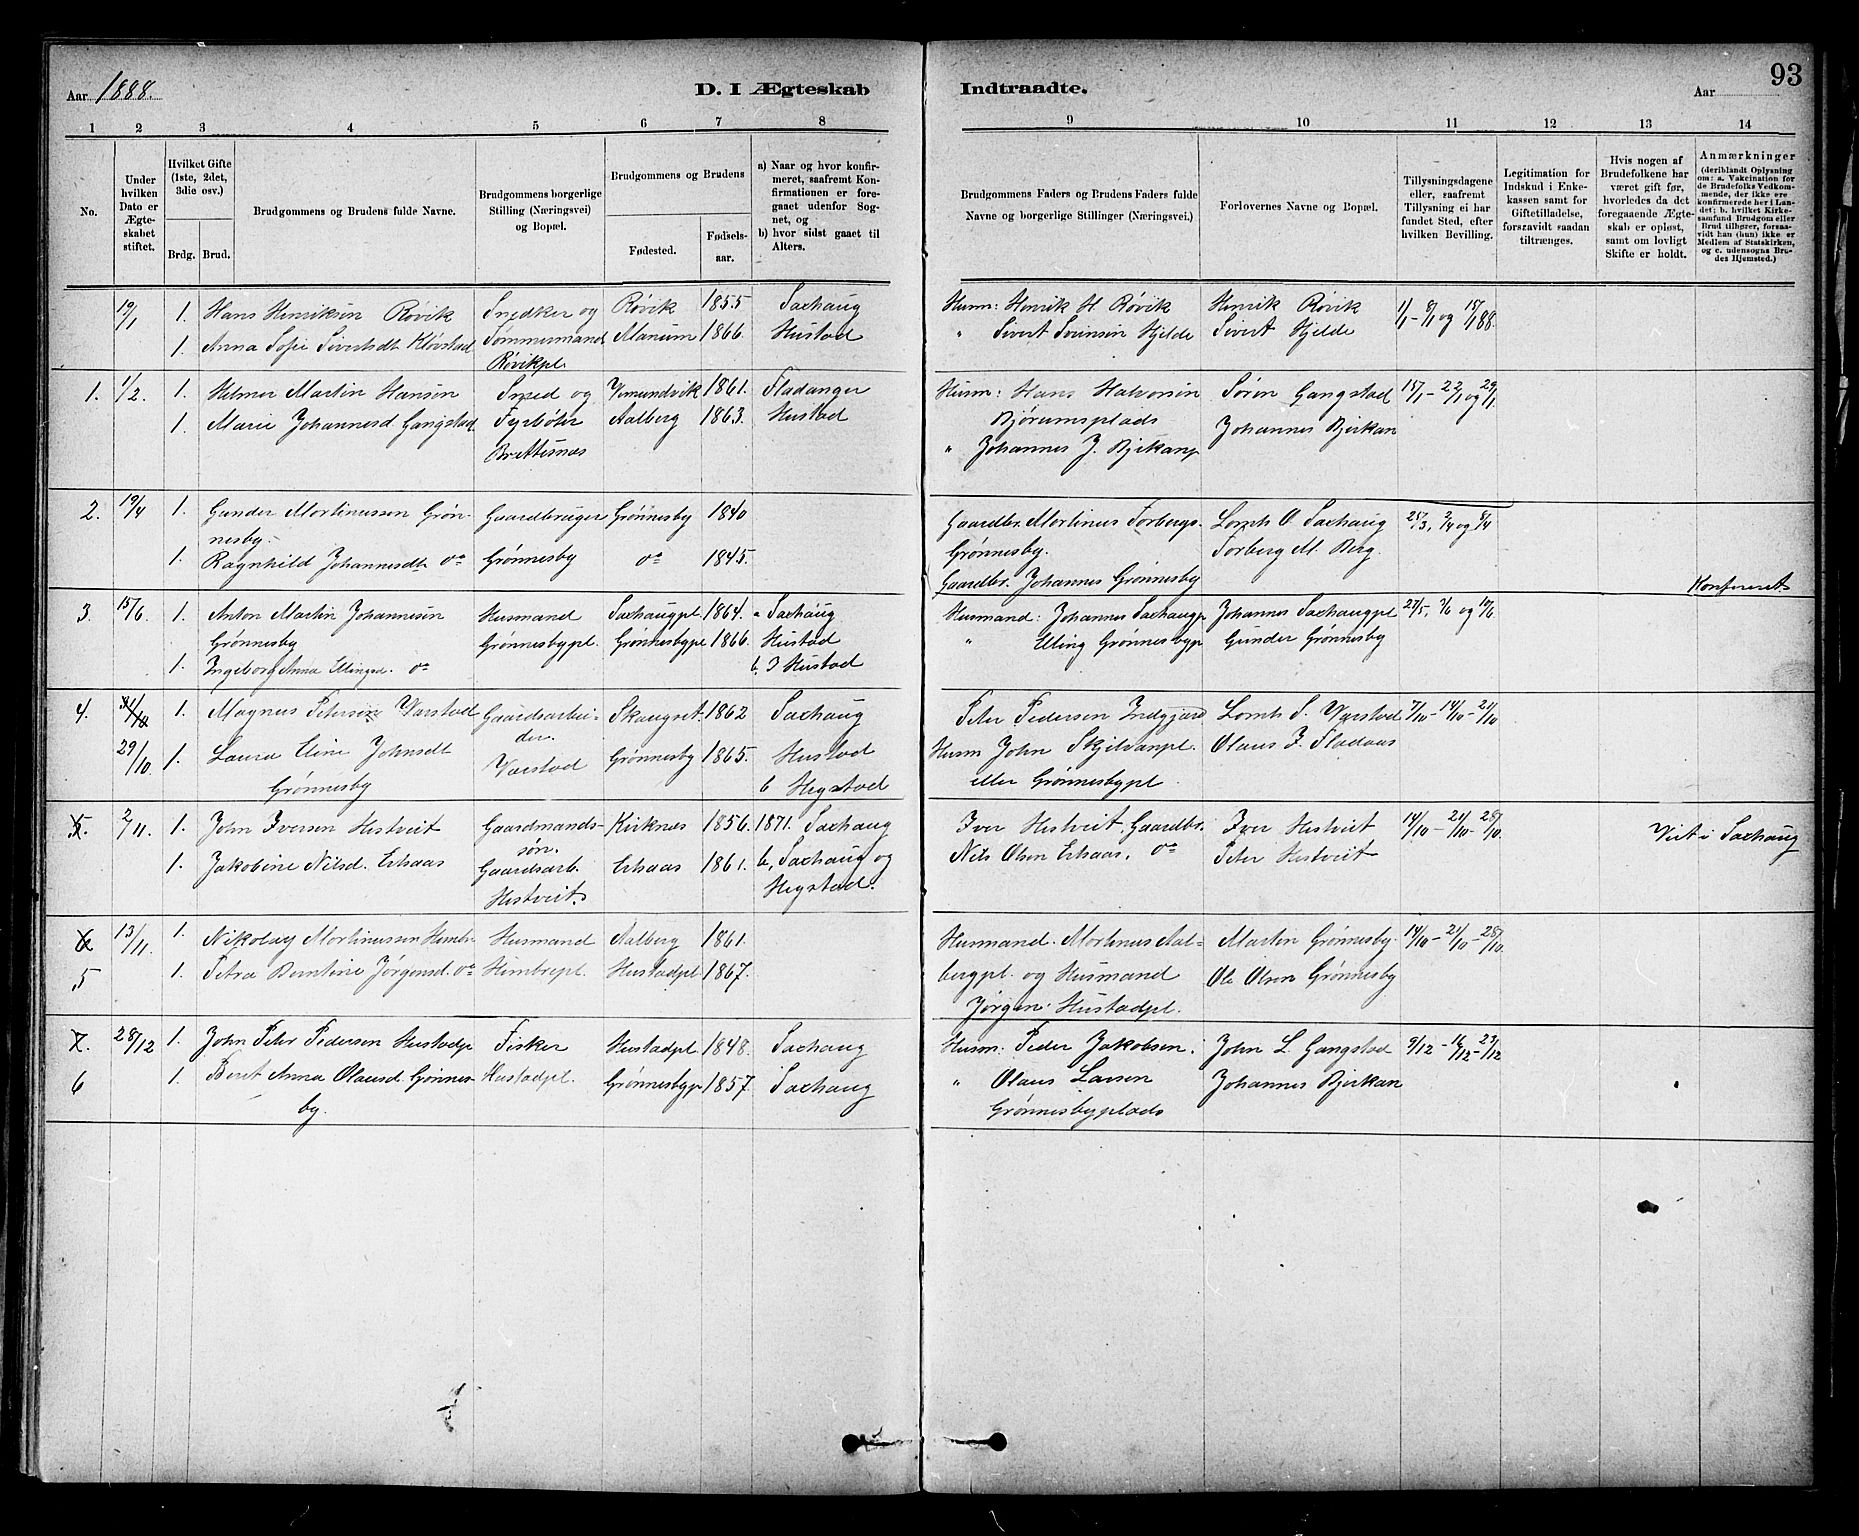 93
Aar 1888.
D. I Ægteskab
Indtraadte.
Aar
1 2 3 4 5 6 7 8
9 10 11 12 13 14
No.
Under hvilken Dato er Ægteskabet stiftet.
Hvilket Gifte (1ste, 2det, 3die osv.)
Brdg. Brud.
Brudgommens og Brudens fulde Navne.
Brudgommens borgerlige Stilling (Næringsvei) og Bopæl.
Brudgommens og Brudens
Fødested. Fødselsaar.
a) Naar og hvor konfirmeret, saafremt Konfirmationen er foregaaet udenfor Sognet, og
b) hvor sidst gaaet til Alters.
Brudgommens Faders og Brudens Faders fulde Navne og borgerlige Stillinger (Næringsvei.)
Forlovernes Navne og Bopæl.
Tillysningsdagene eller, saafremt Tillysning ei har fundet Sted, efter hvilken Bevilling.
Legitimation for Indskud i Enkekassen samt for Giftetilladelse, forsaavidt saadan tiltrænges.
Hvis nogen af Brudefolkene har været gift før, hvorledes da det foregaaende Ægteskab er opløst, samt om lovligt Skifte er holdt.
Anmærkninger (deriblandt Oplysning om: a. Vakcination for de Brudefolks Vedkommende, der ikke ere konfirmerede her i Landet; b. hvilket Kirkesamfund Brudgom eller Brud tilhører, forsaavidt han (hun) ikke er Medlem af Statskirken, og c. udensogns Brudes Hjemsted.)
19/1 1. Hans Henriksen Røvik Snedker og Røvik 1855 Saxhaug Husm: Henrik H. Røvik Henrik Røvik 1/1 - 8/1 og 15/1 88.
1. Anna Sofie Sivertsdt Kløvstad Tømmermand Manum 1866. Hustad " Sivert Sørensen Hjelde Sivert Hjelde
Røvikpl.
1. 1/2. 1. Helmer Martin Hansen Smed og Vemundvik 1861. Fladanger Husm: Hans Halvorsen Søren Gangstad 15/1 - 22/1 og 29/1.
1. Marie Johannesd. Gangstad Fyrbøter Aalberg 1863. Hustad Bjørumsplads Johannes Bjerkan
Brettesnæs " Johannes J. Bjerkanp
2. 19/4 1. Gunder Mortinussen Grøn- Gaardbruger Grønnesby 1840 Gaardbr. Mortinus Torbergs. Lornts O. Saxhaug 25/3, 2/4 og 8/4
nesby. Grønnesby. Torberg M. Berg.
1. Ragnhild Johannesdt do Grønnesby do 1845.
Gaardbr. Johannes Grønnesby Konfereret
3. 15/6. 1. Anton Martin Johannesen Husmand Saxhaugpl. 1864. a Saxhaug Husmand: Johannes Saxhaugp Johannes Saxhaugpl 27/5, 3/6 og 10/6.
Grønnesby Grønnesbypl. Grønnesbypl 1866. Hustad " Elling Grønnesbyp Gunder Grønnesby
1. Ingeborg Anna Ellingsd. do b, I Hustad
4. 1. Magnus Petersen Varstad Gaardsarbei- Skaugset. 1862 Saxhaug Peter Pedersen Indgjerd Lornts S. Varstad 7/10 - 14/10 - 21/10
der.
29/10 1. Laura Eline Johnsdt Varstad Grønnesby 1865. Hustad Husm John Skjelvanpl. Olaus J. Fladaas
Grønnesby b Hegstad eller Grønnesbypl.
5. 2/11. 1. John Iversen Hestveit Gaardmands- Kirknæs 1856. 1871. Saxhaug Iver Hestveit, Gaardbr. Iver Hestveit 14/10 - 21/10 - 28/10. Viet i Saxhaug
søn.
1. Jakobine Nilsd. Erhaas Gaardsarb. Erhaas 1861. b, Saxhaug og Nils Olsen Erhaas. do Peter Hestveit
Hestveit. Hegstad.
6 13/11. 1. Nikolay Mortinussen Hembre Husmand Aalberg 1861. Husmand. Mortinus Aal- Martin Grønnesby. 14/10 - 21/10 - 28/10.
5 1. Petra Berntine Jørgensd. do Hembrepl. Hustadpl 1867. bergpl. og Husmand Ole Olsen Grønnesby
Jørgen Hustadpl.
7. 28/12 1. John Peter Pedersen Hustadp Fisker Hustadpl. 1848. Saxhaug Husm: Peder Jakobsen. John L. Gangstad 9/12 - 16/12 - 23/12
6 1. Beret Anna Olausd. Grønnes- Hustadpl. Grønnesbypl 1857. Saxhaug " Olaus Larsen Johannes Bjerkan
by. Grønnesbyplads